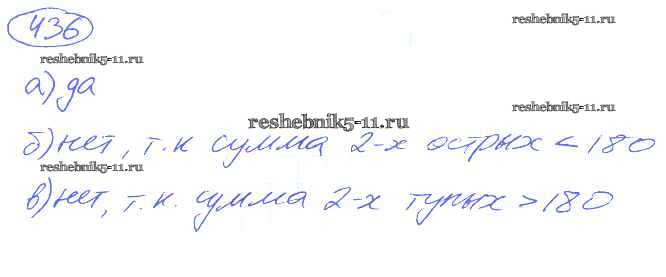 436
reshebnik5-11.ru
reshebnik5-11.ru
а) да
reshebnik5-11.ru
reshebnik5-11.ru
б) нет, т.к сумма 2-х острых < 180
reshebnik5-11.ru
в) нет, т.к. сумма 2-х тупых > 180